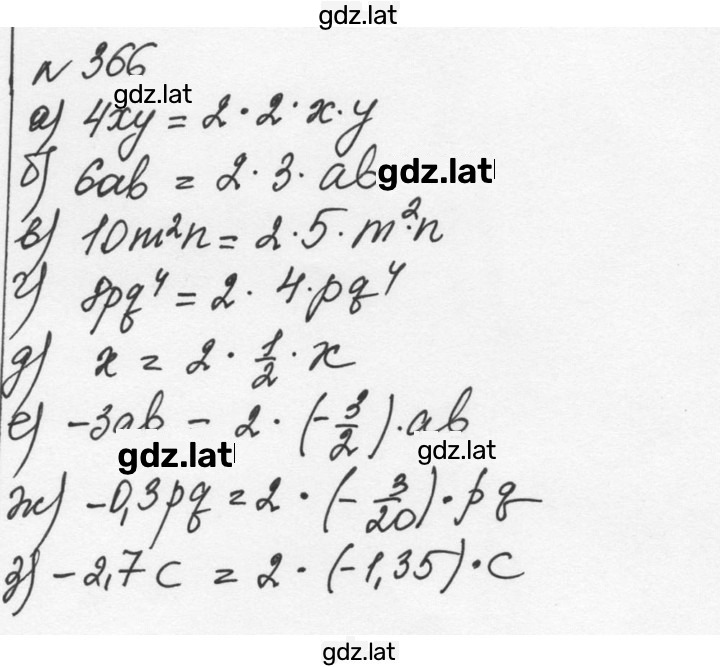 gdz.lat
№ 366
gdz.lat
а) 4xy = 2 · 2 · x · y
б) 6ab = 2 · 3 · ab
gdz.lat
в) 10m²n = 2 · 5 · m² · n
г) 8pq⁴ = 2 · 4 · pq⁴
д) x = 2 · 1/2 · x
е) -3ab = 2 · (-3/2) · ab
gdz.lat
gdz.lat
ж) -0,3pq = 2 · (-3/20) · pq
з) -2,7c = 2 · (-1,35) · c
gdz.lat